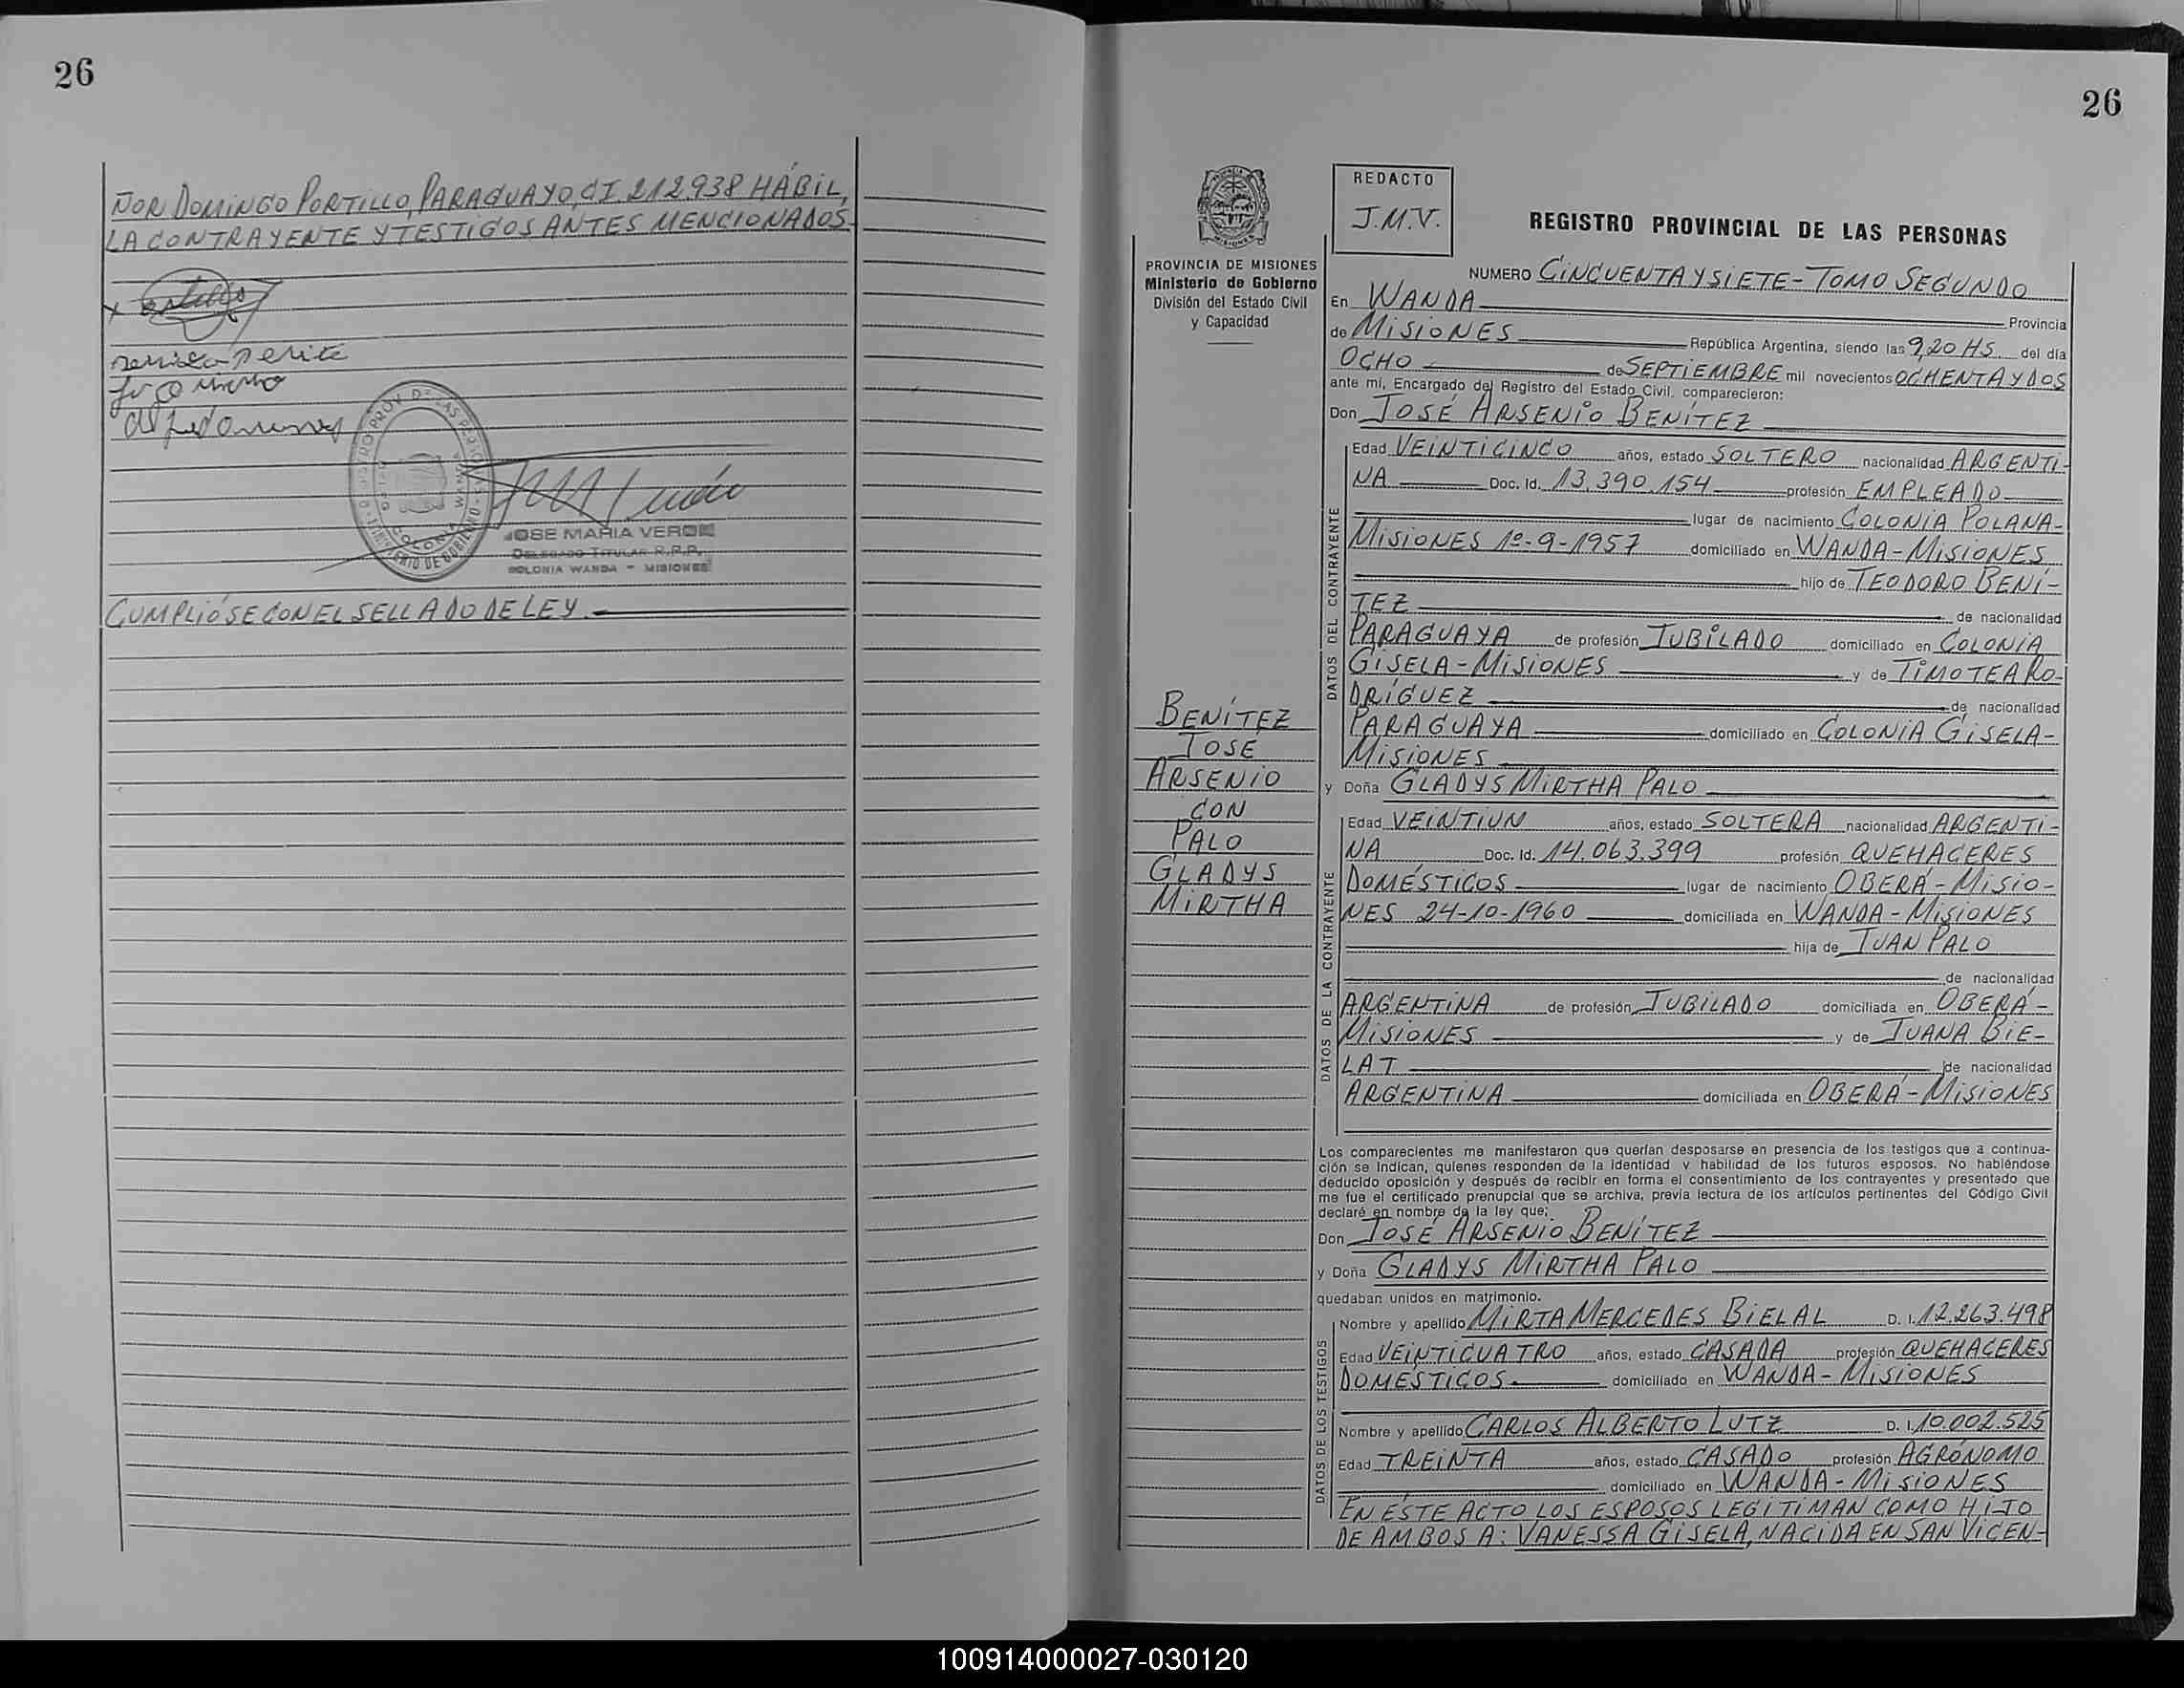 26
ÑOR DOMINGO PORTILLO, PARAGUAYO, C.I. 212.938 HÁBIL,
LA CONTRAYENTE Y TESTIGOS ANTES MENCIONADOS.
JOSE MARIA VERON
DELEGADO TITULAR R.P.P.
COLONIA WANDA - MISIONES
CUMPLIÓSE CON EL SELLADO DE LEY.
26
REDACTO
J.M.V.
REGISTRO PROVINCIAL DE LAS PERSONAS
PROVINCIA DE MISIONES
Ministerio de Gobierno
División del Estado Civil
y Capacidad
BENÍTEZ
JOSÉ
ARSENIO
CON
PALO
GLADYS
MIRTHA
NUMERO CINCUENTA Y SIETE - TOMO SEGUNDO
En WANDA Provincia
de MISIONES República Argentina, siendo las 9,20 HS. del día
OCHO de SEPTIEMBRE mil novecientos OCHENTA Y DOS
ante mí, Encargado del Registro del Estado Civil, comparecieron:
Don JOSÉ ARSENIO BENÍTEZ
DATOS DEL CONTRAYENTE
Edad VEINTICINCO años, estado SOLTERO nacionalidad ARGENTI-
NA Doc. Id. 13.390.154 profesión EMPLEADO
lugar de nacimiento COLONIA POLANA-
MISIONES 1º-9-1957 domiciliado en WANDA - MISIONES
hijo de TEODORO BENÍ-
TEZ de nacionalidad
PARAGUAYA de profesión JUBILADO domiciliado en COLONIA
GISELA - MISIONES y de TIMOTEA RO-
DRÍGUEZ de nacionalidad
PARAGUAYA domiciliado en COLONIA GISELA-
MISIONES
y Doña GLADYS MIRTHA PALO
DATOS DE LA CONTRAYENTE
Edad VEINTIUN años, estado SOLTERA nacionalidad ARGENTI-
NA Doc. Id. 14.063.399 profesión QUEHACERES
DOMÉSTICOS lugar de nacimiento OBERÁ - MISIO-
NES 24-10-1960 domiciliada en WANDA - MISIONES
hija de JUAN PALO
de nacionalidad
ARGENTINA de profesión JUBILADO domiciliada en OBERÁ -
MISIONES y de JUANA BIE-
LAT de nacionalidad
ARGENTINA domiciliada en OBERÁ - MISIONES
Los comparecientes me manifestaron que querían desposarse en presencia de los testigos que a continua-
ción se indican, quienes responden de la identidad y habilidad de los futuros esposos. No habiéndose
deducido oposición y después de recibir en forma el consentimiento de los contrayentes y presentado que
me fue el certificado prenupcial que se archiva, previa lectura de los artículos pertinentes del Código Civil
declaré en nombre de la ley que:
Don JOSÉ ARSENIO BENÍTEZ
y Doña GLADYS MIRTHA PALO
quedaban unidos en matrimonio.
DATOS DE LOS TESTIGOS
Nombre y apellido MIRTA MERCEDES BIELAL D. I. 12.263.498
Edad VEINTICUATRO años, estado CASADA profesión QUEHACERES
DOMÉSTICOS domiciliado en WANDA - MISIONES
Nombre y apellido CARLOS ALBERTO LUTZ D. I. 10.002.525
Edad TREINTA años, estado CASADO profesión AGRÓNOMO
domiciliado en WANDA - MISIONES
EN ÉSTE ACTO LOS ESPOSOS LEGITIMAN COMO HIJO
DE AMBOS A: VANESSA GISELA, NACIDA EN SAN VICEN-
100914000027-030120